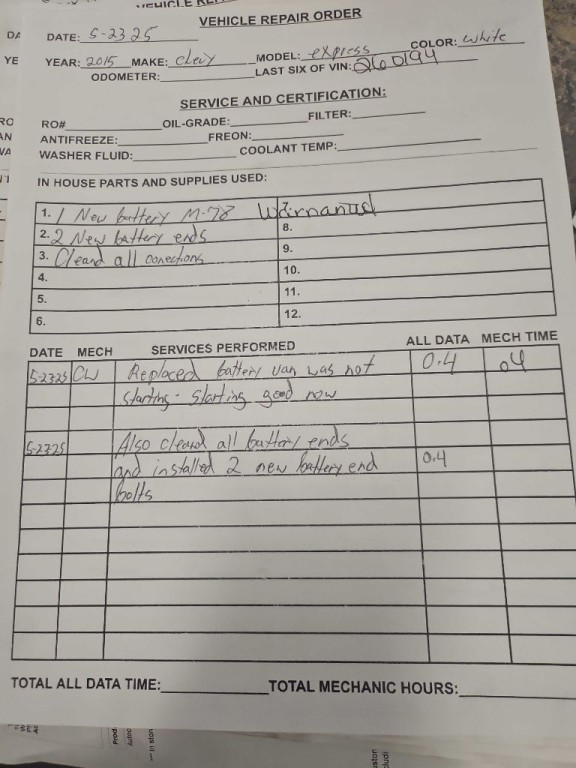 VEHICLE REPAIR ORDER
DATE: 5-23 25
YEAR: 2015 MAKE: Chevy MODEL: express COLOR: white
ODOMETER: LAST SIX OF VIN: 260194
SERVICE AND CERTIFICATION:
RO# OIL-GRADE: FILTER:
ANTIFREEZE: FREON:
WASHER FLUID: COOLANT TEMP:
IN HOUSE PARTS AND SUPPLIES USED:
1. 1 New battery M-78 7.
2. 2 New battery ends 8.
3. Cleand all conections 9.
4. 10.
5. 11.
6. 12.
DATE MECH SERVICES PERFORMED ALL DATA MECH TIME
5-2325 CW Replaced battery van was not 0.4 .04
starting - Starting good now
5-2325 Also cleand all battery ends
and installed 2 new battery end 0.4
bolts
TOTAL ALL DATA TIME: TOTAL MECHANIC HOURS: